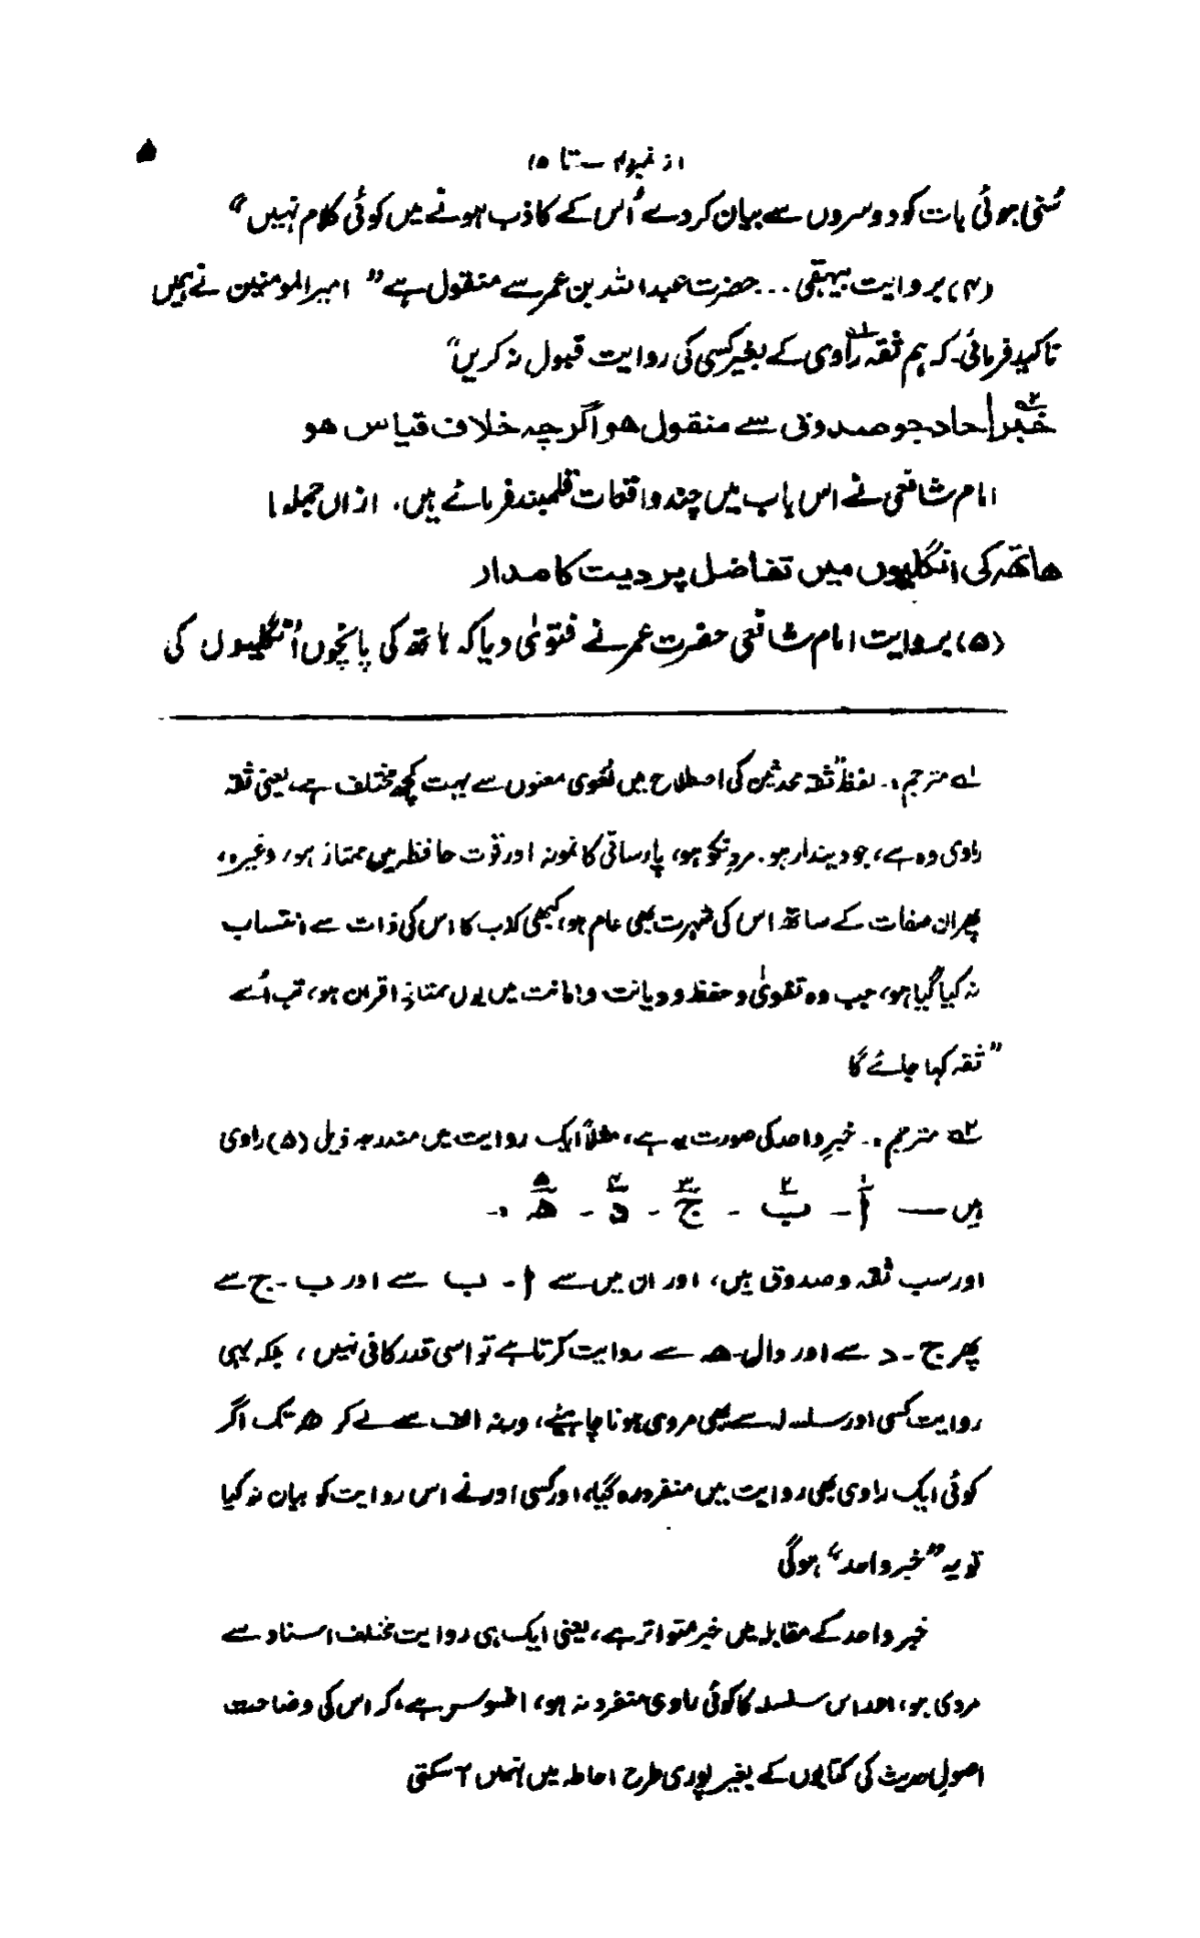 از نمبر ۴ ــ تا ۱۵
۵
سُنی ہوئی بات کو دوسروں سے بیان کردے اُس کے کاذب ہونے میں کوئی کلام نہیں“
(۴) بروایت بیہقی ... حضرت عبداللہ بن عمر سے منقول ہے ”امیرالمومنین نے ہمیں
تاکید فرمائی کہ ہم ثقہ ؎۱ راوی کے بغیر کسی کی روایت قبول نہ کریں“
خبر ؎۲ احاد جو صدوق سے منقول ھو اگرچہ خلاف قیاس ھو
امام شافعی نے اس باب میں چند واقعات قلمبند فرمائے ہیں. ازاں جملہ ا
ھاتھ کی انگلیوں میں تفاضل پر دیت کا مدار
(۵) بروایت امام شافعی حضرت عمر نے فتویٰ دیا کہ ہاتھ کی پانچوں اُنگلیوں کی
؎۱ مترجم :۔ لفظ ”ثقہ محدثین کی اصطلاح میں لُغوی معنوں سے بہت کچھ مختلف ہے، یعنی ثقہ
راوی وہ ہے، جو دیندار ہو. مردِ نکو ہو، پارسائی کا نمونہ اور قوّت حافظہ میں ممتاز ہو، وغیرہ،
پھر ان صفات کے ساتھ اس کی شہرت بھی عام ہو، کبھی کذب کا اس کی ذات سے انتساب
نہ کیا گیا ہو، جب وہ تقویٰ و حفظ و دیانت و امانت میں یوں ممتاز اقران ہو، تب اُسے
”ثقہ کہا جائے گا
؎۲ مترجم :۔ خبرِ واحد کی صورت یہ ہے، مثلاً ایک روایت میں مندرجہ ذیل (۵) راوی
ہیں ــ ا۱ - ب۲ - ج۳ - د۴ - ھ۵ :-
اور سب ثقہ و صدوق ہیں، اور ان میں سے ا - ب سے اور ب - ج سے
پھر ج - د سے اور دال - ھ سے روایت کرتا ہے تو اسی قدر کافی نہیں، بلکہ یہی
روایت کسی اور سلسلہ سے بھی مروی ہونا چاہیئے، ورنہ الف سے لے کر ھ تک اگر
کوئی ایک راوی بھی روایت میں منفرد رہ گیا، اور کسی اور نے اس روایت کو بیان نہ کیا
تو یہ ”خبر واحد“ ہوگی
خبر واحد کے مقابلہ میں خبر متواتر ہے، یعنی ایک ہی روایت مختلف اسناد سے
مروی ہو، اور اس سلسلہ کا کوئی راوی منفرد نہ ہو، افسوس ہے، کہ اس کی وضاحت
اصولِ حدیث کی کتابوں کے بغیر پوری طرح احاطہ میں نہیں آسکتی